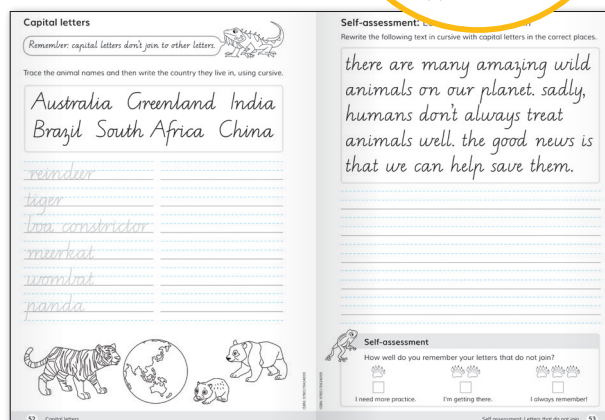 Capital letters
Remember: capital letters don't join to other letters.
Trace the animal names and then write the country they live in, using cursive.
Australia Greenland India
Brazil South Africa China
reindeer
tiger
boa constrictor
meerkat
wombat
panda
52 Capital letters
Self-assessment:
Rewrite the following text in cursive with capital letters in the correct places.
there are many amazing wild
animals on our planet. sadly,
humans don't always treat
animals well. the good news is
that we can help save them.
Self-assessment
How well do you remember your letters that do not join?
I need more practice. I'm getting there. I always remember!
Self assessment: Letters that do not join 53